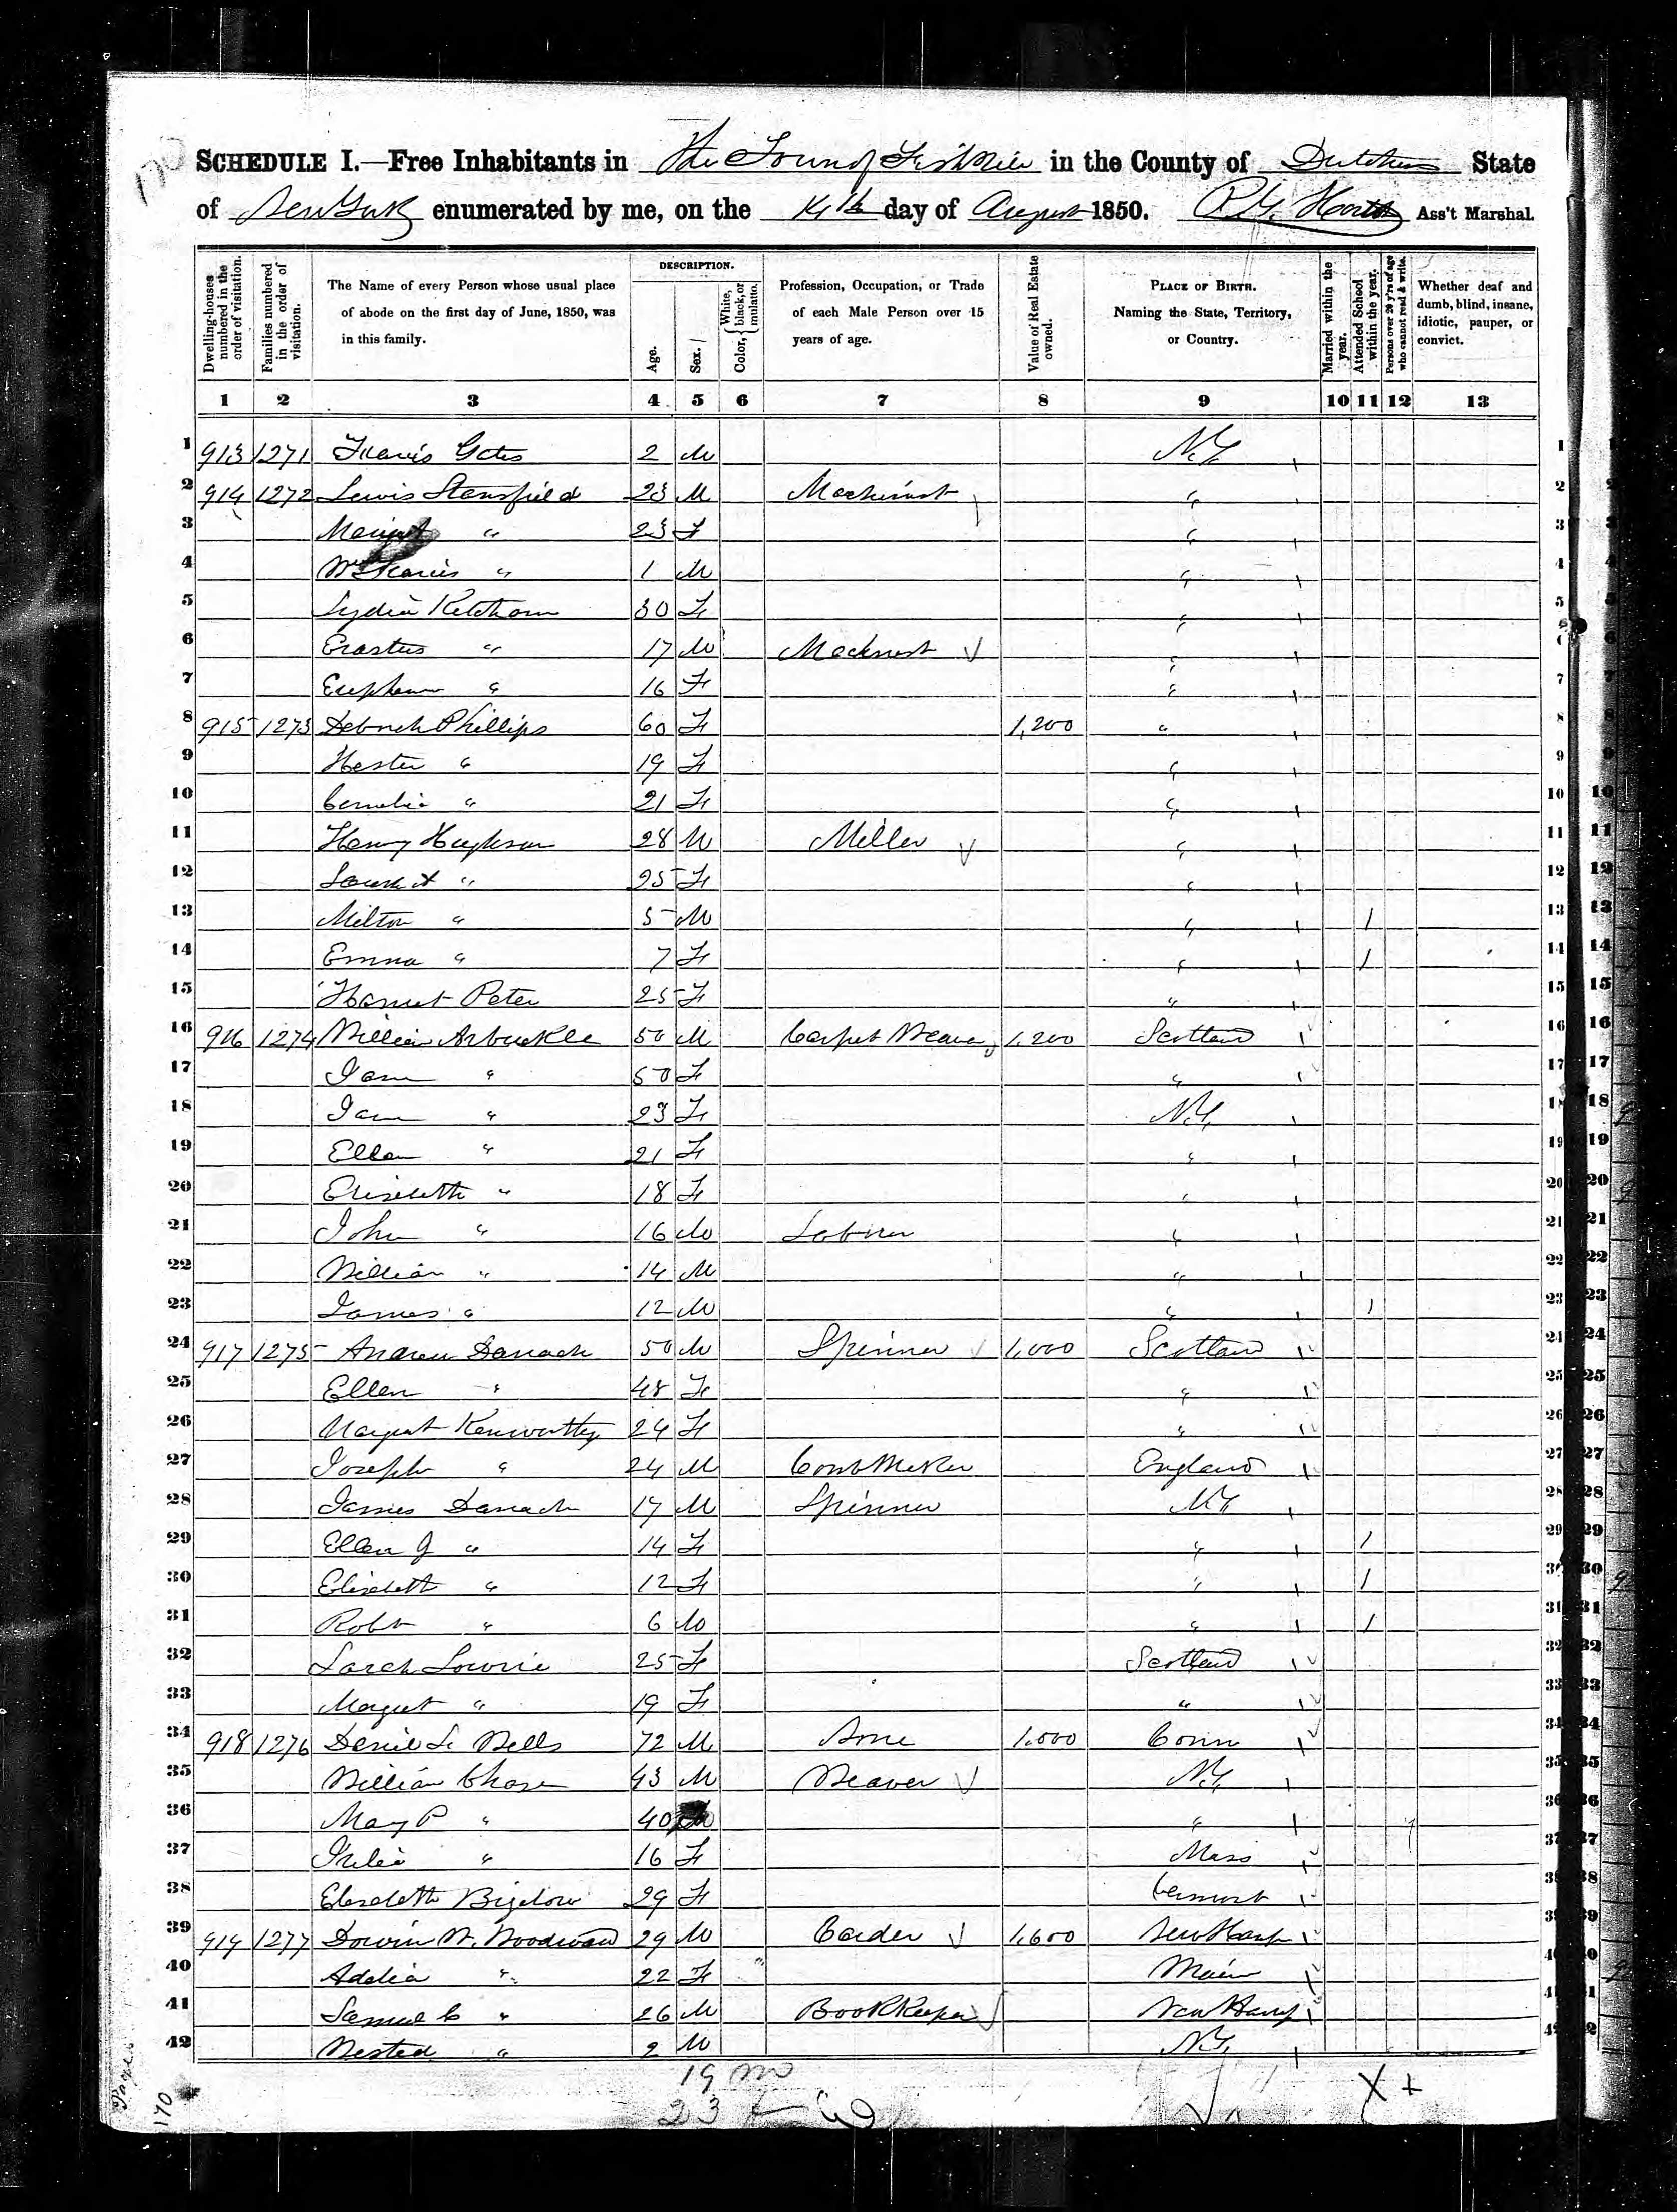 170
SCHEDULE I.—Free Inhabitants in the Town of Fishkill in the County of Dutchess State
of New York enumerated by me, on the 14th day of August 1850. Ass't Marshal.
Dwelling-houses numbered in the order of visitation.
Families numbered in the order of visitation.
The Name of every Person whose usual place of abode on the first day of June, 1850, was in this family.
DESCRIPTION.
Age.
Sex.
Color, { White, black, or mulatto.
Profession, Occupation, or Trade of each Male Person over 15 years of age.
Value of Real Estate owned.
PLACE OF BIRTH. Naming the State, Territory, or Country.
Married within the year.
Attended School within the year.
Persons over 20 y'rs of age who cannot read & write.
Whether deaf and dumb, blind, insane, idiotic, pauper, or convict.
1 2 3 4 5 6 7 8 9 10 11 12 13
1 913 1271 Francis Gates 2 M N.Y. 1
2 914 1272 Lewis Stansfield 23 M Machinist " 2
3 Margret " 23 F " 3
4 Wm Francis " 1 M " 4
5 Lydia Ketcham 30 F " 5
6 Erastus " 17 M Machinist " 6
7 " 16 F " 7
8 915 1273 Deborah Phillips 60 F 1,200 " 8
9 Hester " 19 F " 9
10 Cornelia " 21 F " 10
11 Henry Hughson 28 M Miller " 11
12 Sarah A " 25 F " 12
13 Milton " 5 M " / 13
14 Emma " 7 F " / 14
15 Harriet Peter 25 F " 15
16 916 1274 William Arbuckle 50 M Carpet Weaver 1,200 Scotland 16
17 Jane " 50 F " 17
18 Jane " 23 F N.Y. 18
19 Ellen " 21 F " 19
20 Elizabeth " 18 F " 20
21 John " 16 M Laborer " 21
22 William " 14 M " 22
23 James " 12 M " / 23
24 917 1275 Andrew Darrach 50 M Spinner 1,000 Scotland 24
25 Ellen " 48 F " 25
26 Margret Kenworthy 24 F " 26
27 Joseph " 24 M Comb Maker England 27
28 James Darrach 17 M Spinner N.Y. 28
29 Ellen J " 14 F " / 29
30 Elizabeth " 12 F " / 30
31 Robt " 6 M " / 31
32 Sarah Lowrie 25 F Scotland 32
33 Margret " 19 F " 33
34 918 1276 Daniel S. Wells 72 M None 1,000 Conn 34
35 William Chase 43 M Weaver N.Y. 35
36 Mary P " 40 " 36
37 Julia " 16 F Mass 37
38 Elizabeth Bigelow 29 F Vermont 38
39 919 1277 W. Woodward 29 M Carder 1,600 New Hamp 39
40 Adelia " 22 F Maine 40
41 Samuel C " 26 M Book Keeper New Hamp 41
42 " 2 M N.Y. 42
19 m
23 f
X +
170